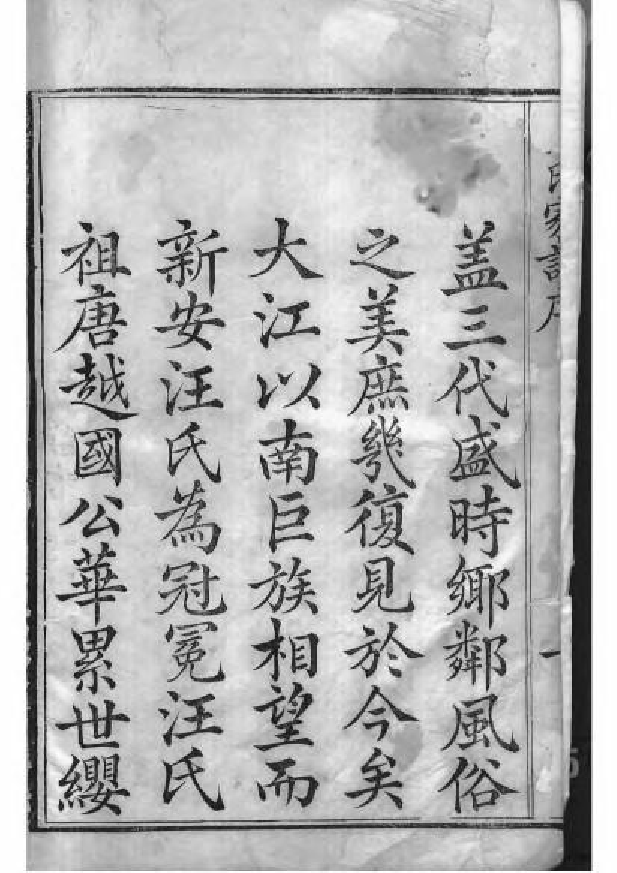 氏家譜序
一
盖三代盛時鄉鄰風俗
之美庶幾復見於今矣
大江以南巨族相望而
新安汪氏為冠冕汪氏
祖唐越國公華累世纓